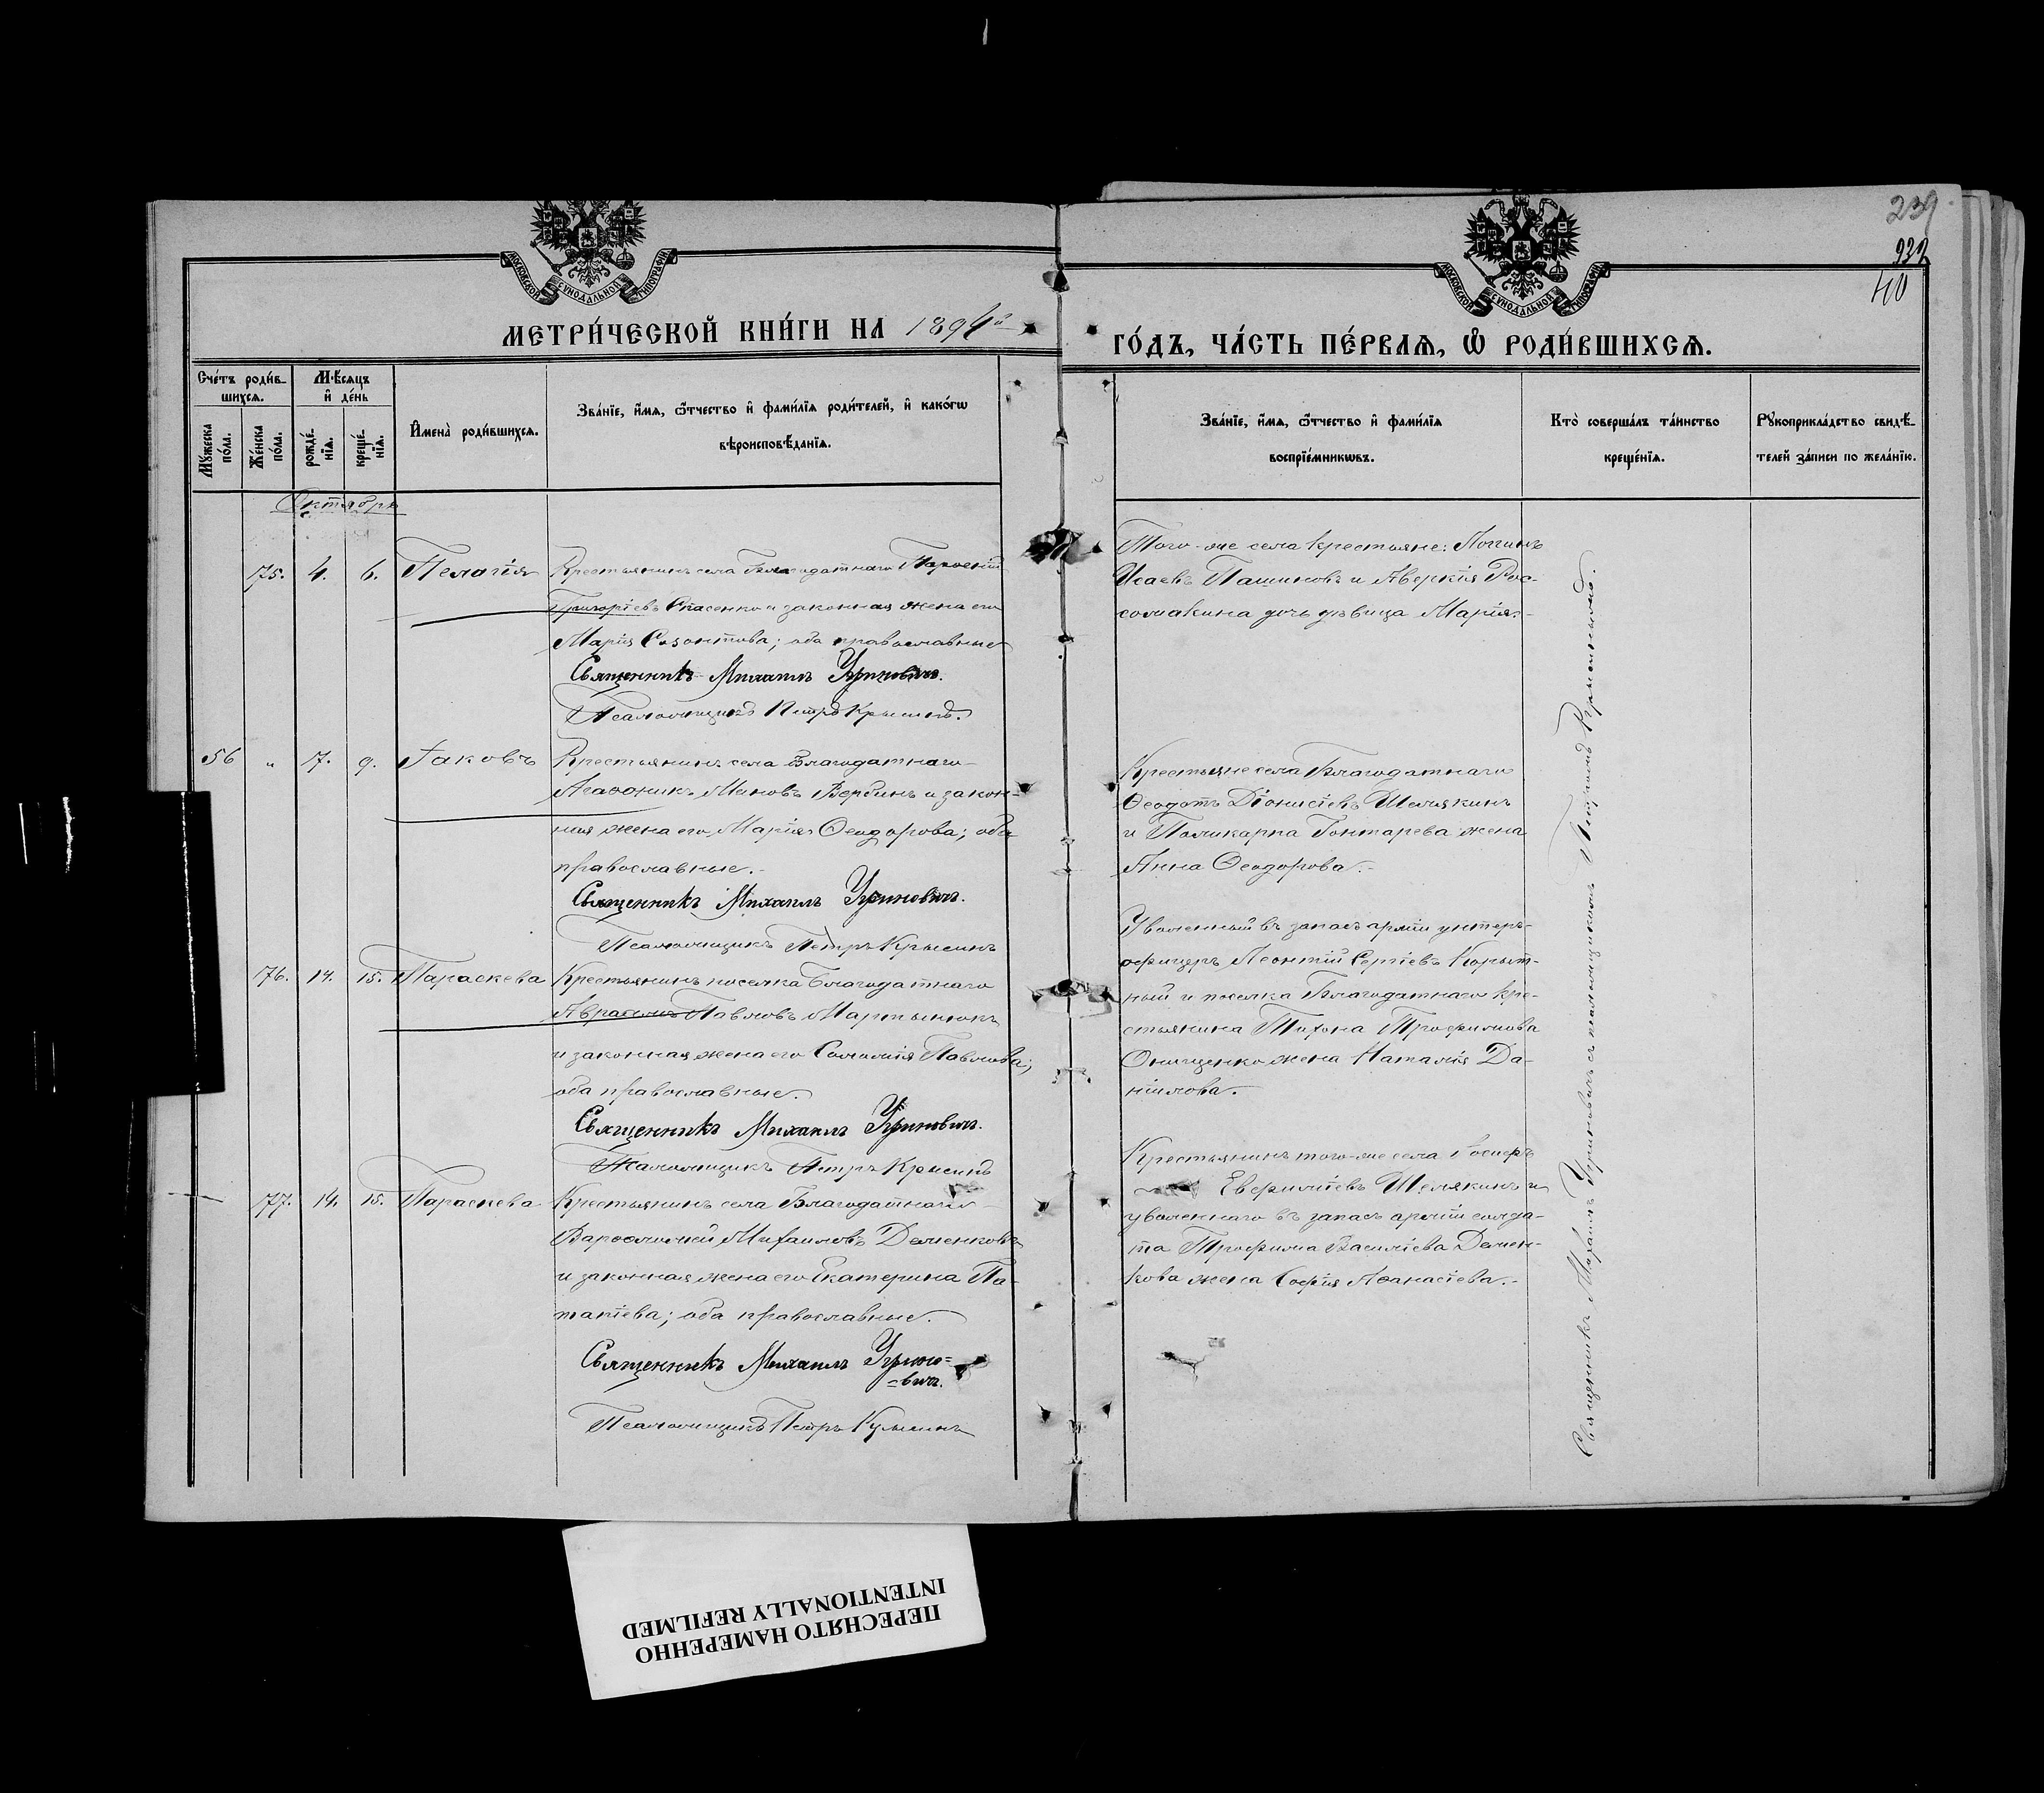 239
932
40
МОСКОВСКОЙ СУНОДАЛЬНОЙ ТИПОГРАФІИ
МОСКОВСКОЙ СУНОДАЛЬНОЙ ТИПОГРАФІИ
МЕТРИ́ЧЕСКОЙ КНИ́ГИ НА 1894й
ГО́ДЪ, ЧА́СТЬ ПЕ́РВАѦ, Ѽ РОДИ́ВШИХСѦ.
Сче́тъ роди́в-
шихсѧ.
Мꙋ́жеска по́ла.
Же́нска по́ла.
М́ѣсѧцъ
и҆ де́нь
рожде́-
нїѧ.
креще́-
нїѧ.
И҆мена̀ роди́вшихсѧ.
Зва́нїе, и҆́мѧ, ѻ҆́тчество и҆ фами́лїѧ роди́телей, и҆ како́гѡ
вѣроисповѣ́данїѧ.
Зва́нїе, и҆́мѧ, ѻ҆́тчество и҆ фами́лїѧ
воспрїе́мникѡвъ.
Кто̀ соверша́лъ та́инство
креще́нїѧ.
Рꙋкоприкла́дство свидѣ́-
телей за́писи по жела́нїю.
Октября
75. 4. 6. Пелагія
Крестьянинъ села Благодатнаго Парѳеній
Григоріевъ Спасенко и законная жена его
Марія Созонтова; оба православные
Священникъ Михаилъ Угриновичъ.
Псаломщикъ Петръ Крысинъ.
Того-же села крестьяне: Логгинъ
Исаевъ Пашиновъ и Аверкія Рос-
сомакина дочь дѣвица Марія.-
56 " 7. 9. Іаковъ
Крестьянинъ села Благодатнаго
Агаѳоникъ Миновъ Вербинъ и закон-
ная жена его Марія Ѳеодорова; оба
православные.-
Священникъ Михаилъ Угриновичъ.
Псаломщикъ Петръ Крысинъ
Крестьяне села Благодатнаго
Ѳеодотъ Діонисіевъ Шелякинъ
и Поликарпа Гонтарева жена
Анна Ѳеодорова.-
76. 14. 15. Параскева
Крестьянинъ поселка Благодатнаго
Авраамъ Павловъ Мартынюкъ
и законная жена его Соломія Павлова;
оба православные.
Священникъ Михаилъ Угриновичъ.
Псаломщикъ Петръ Крысинъ
Уволенный въ запасъ арміи унтеръ-
офицеръ Леонтій Сергіевъ Корыт-
ный и поселка Благодатнаго кре-
стьянина Тихона Трофимова
Онищенко жена Наталія Да-
ніилова.
77. 14. 15. Параскева
Крестьянинъ села Благодатнаго
Варѳоломей Михаиловъ Деменковъ
и законная жена его Екатерина Па-
тапіева; оба православные.
Священникъ Михаилъ Угрино=
=вичъ.
Псаломщикъ Петръ Крысинъ
Крестьянинъ того-же села
Евфиміевъ Шелякинъ и
уволеннаго въ запасъ арміи солда-
та Трофима Василіева Демен-
кова жена Софія Аѳанасіева.-
Священникъ Михаилъ Угриновичъ съ псаломщикомъ Петромъ Крысинымъ.
ПЕРЕСНЯТО НАМЕРЕННО
INTENTIONALLY REFILMED